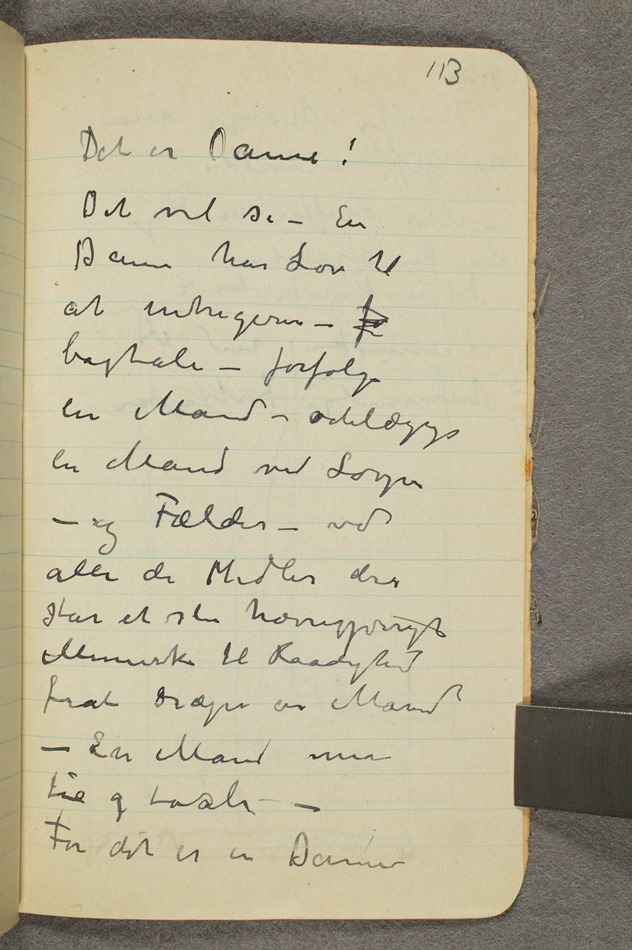 113
Det er Dame!
Det vil si – En
Dame har Lov til
at intrigere –
bagtale – forfølge
en Mand – ødelægge
en Mand ved Løgne
– og Fælder – ved
alle de Midler der
star et slu hævngjerrigt
Menneske til Raadighed
forat dræpe en Mand
– En Mand maa
tie og taale –
For det er en Dame